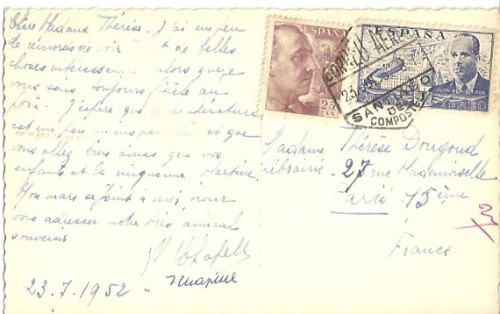 Chère Madame Thérèse. J'ai un peu
le remords de voir tant de belles
choses intéressantes alors que je
vous sais toujours fidèle au
J'espère que la température
est un peu moins et que
vous allez bien ainsi que vos
enfants et la mignonne Martine
Mon mari se joint à moi pour
vous adresser notre très amical
souvenir
23.7.1952
ESPAÑA
25
CTS
CORREO AEREO
SANTIAGO
DE
COMPOSTELA
ESPAÑA
JUAN DE LA CIERVA
Madame Thérèse Dougoud
Librairie
27 rue Mademoiselle
Paris 15ème
France